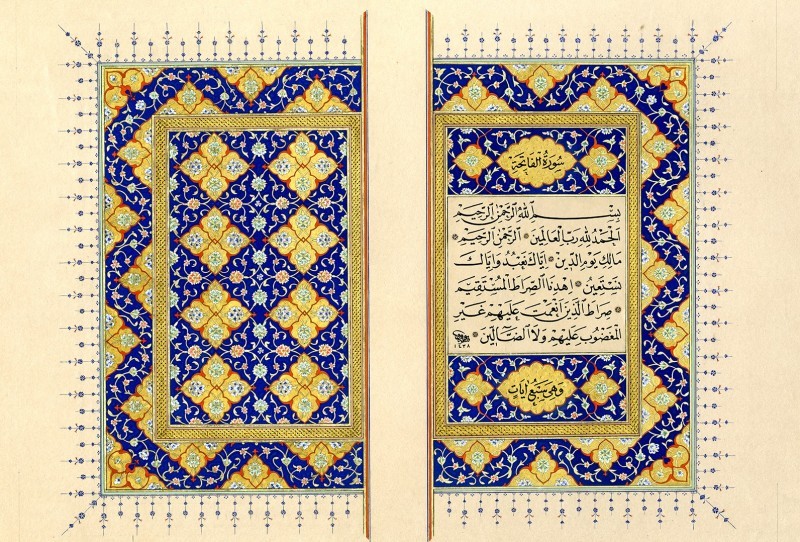 سُورَةُ الْفَاتِحَةِ
بِسْمِ اللّٰهِ الرَّحْمٰنِ الرَّحِيمِ
اَلْحَمْدُ لِلّٰهِ رَبِّ الْعَالَمِينَ * اَلرَّحْمٰنِ الرَّحِيمِ *
مَالِكِ يَوْمِ الدِّينِ * اِيَّاكَ نَعْبُدُ وَاِيَّاكَ
نَسْتَعِينُ * اِهْدِنَا الصِّرَاطَ الْمُسْتَقِيمَ
* صِرَاطَ الَّذِينَ اَنْعَمْتَ عَلَيْهِمْ غَيْرِ
الْمَغْضُوبِ عَلَيْهِمْ وَلَا الضَّالِّينَ *
١٤٣٨
وَهِيَ سَبْعُ اٰيَاتٍ